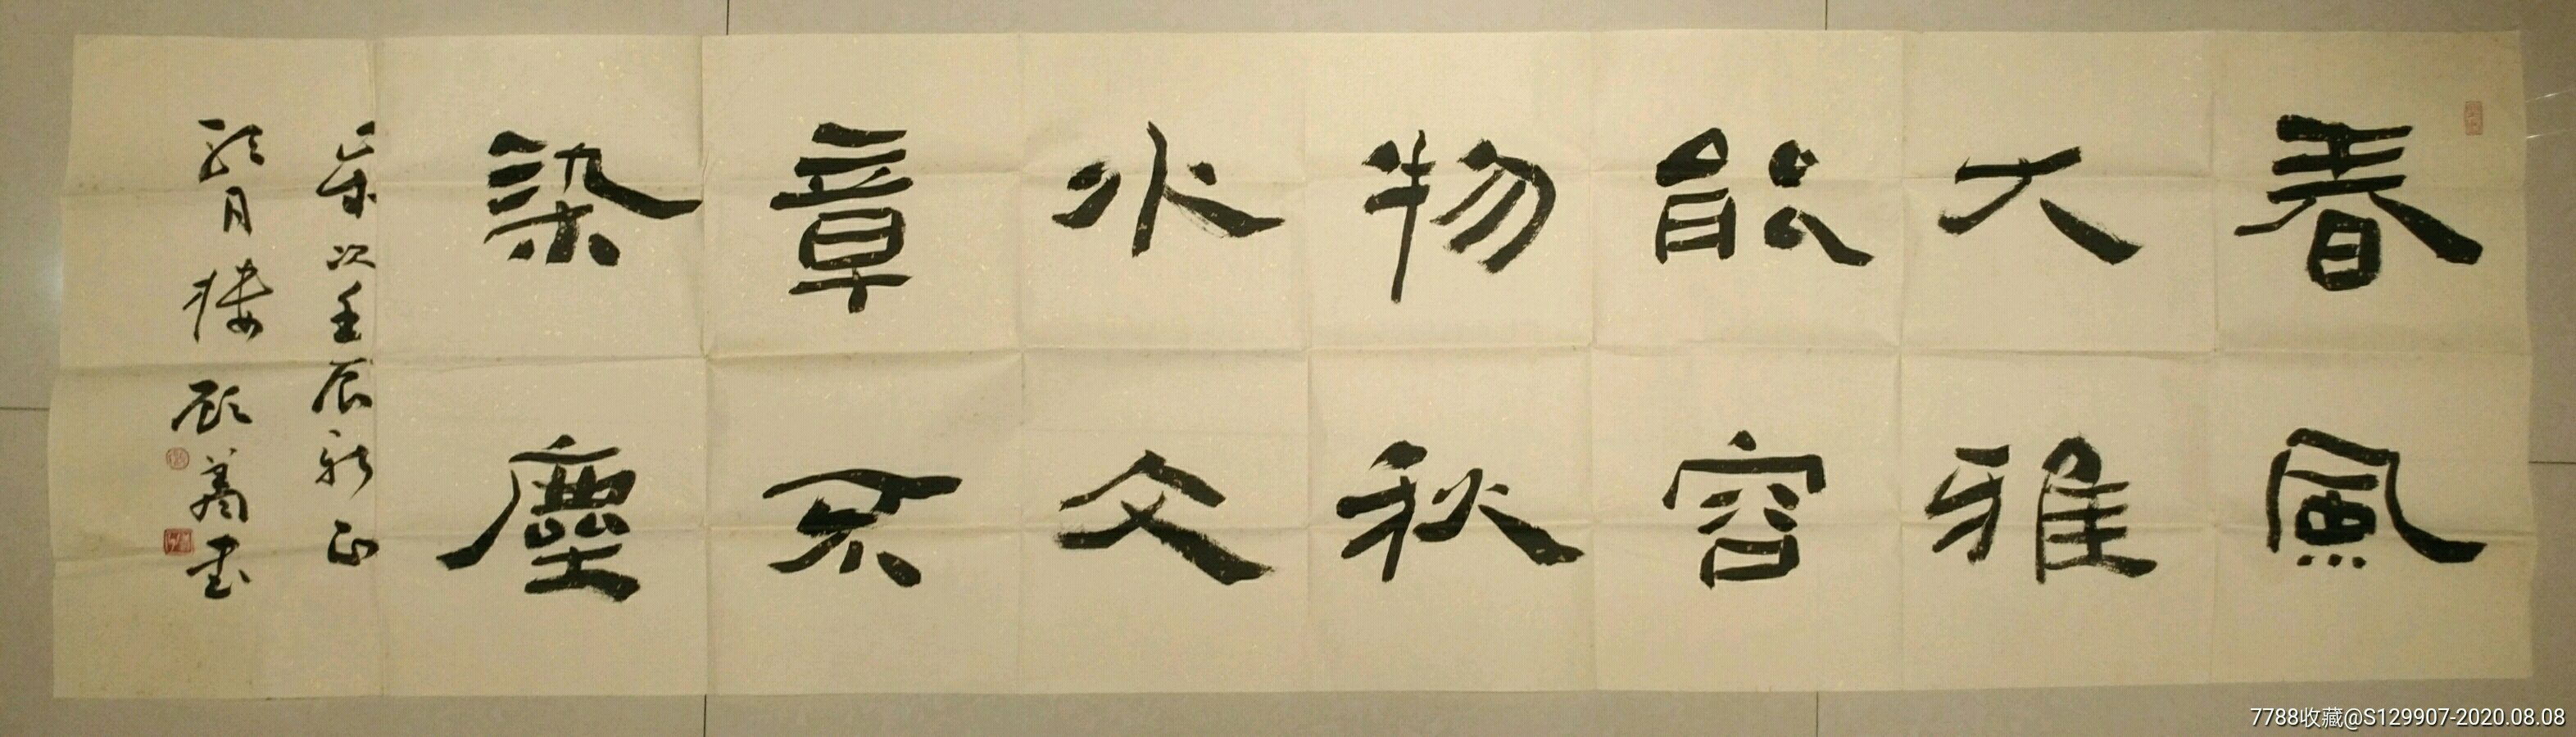 春風
大雅
能容
物秋
水文
章不
染塵
歲次壬辰新正
月樓 顧書
7788收藏@S129907-2020.08.08